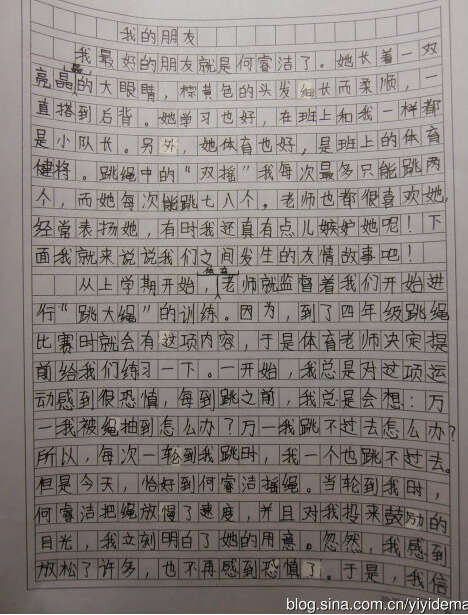 我的朋友
我最好的朋友就是何睿洁了。她长着一双
亮晶晶的大眼睛，棕黄色的头发细长而柔顺，一
直搭到后背。她学习也好，在班上和我一样都
是小队长。另外，她体育也好，是班上的体育
健将。跳绳中的“双摇”我每次最多只能跳两
个，而她每次能跳七八个。老师也都很喜欢她，
经常表扬她，有时我还真有点儿嫉妒她呢！下
面我就来说说我们之间发生的友情故事吧！
从上学期开始，体育老师就监督着我们开始进
行“跳大绳”的训练。因为，到了四年级跳绳
比赛时就会有这项内容，于是体育老师决定提
前给我们练习一下。一开始，我总是对这项运
动感到很恐慌，每到跳之前，我总是会想：万
一我被绳抽到怎么办了万一我跳不过去怎么办？
所以，每次一轮到我跳时，我一个也跳不过去。
但是今天，恰好到何睿洁摇绳。当轮到我时，
何睿洁把绳放慢了速度，并且对我投来鼓励的
目光，我立刻明白了她的用意。忽然，我感到
放松了许多，也不再感到恐慌了。于是，我信
blog.sina.com.cn/yiyidema